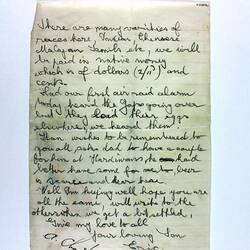 There are many varieties of
races here, Indian, Chenese
Malayan Tamils etc, we will
be paid in native money
which is of dollars (2/11) and
cents.
Had our first air raid alarm
today heard the Japs going over
but they laid their eggs
elsewhere, we heard them
wishes to be remembered to
you all, asks dad to have a couple
for him at Hardimans he said
better have some for me too beer
is scarce and dear here.
Well I'm keeping well hope you are
all the same, will write to the
others when we get a bit settled,
Give my love to all
Your loving Son